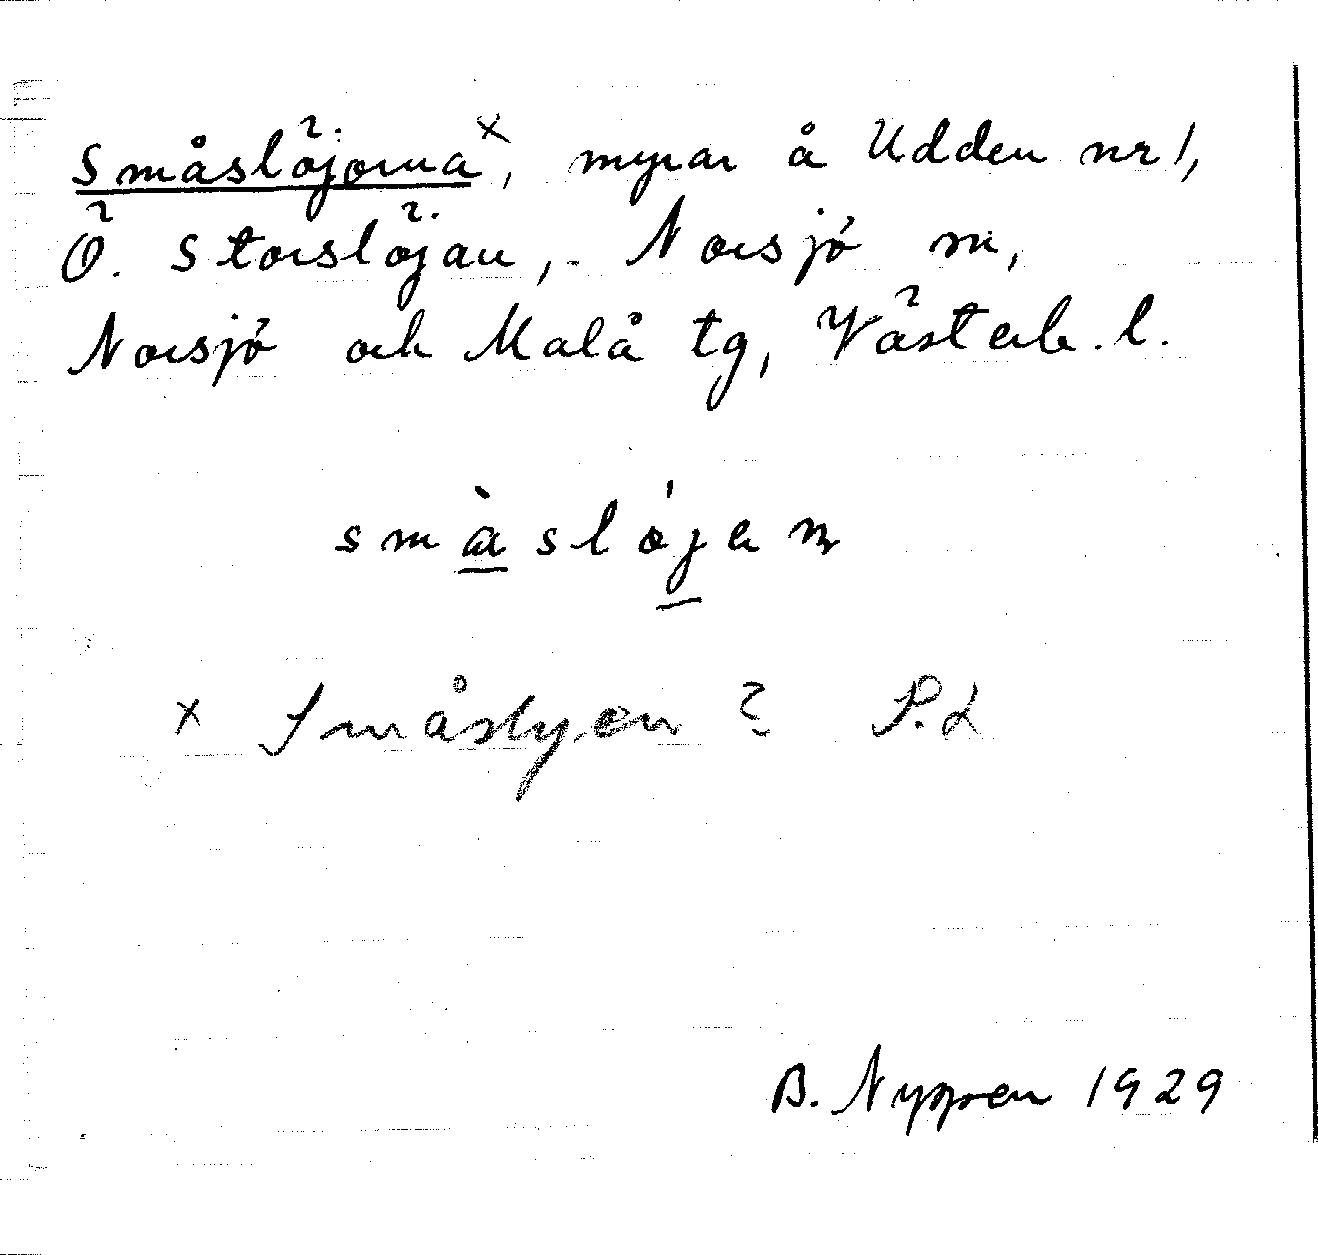 Småslöjorna ×, myrar å Udden nr 1,
Ö. Storslöjan, Norsjö sn,
Norsjö och Malå tg, Västerb. l.
småslöjen
× Småslyen? P.L
B. Nyppen 1929